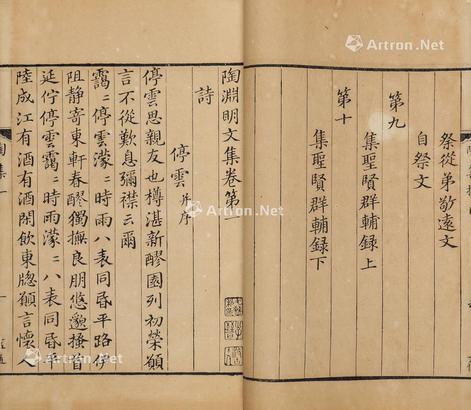 祭從弟敬遠文
自祭文
第九
集聖賢群輔録上
第十
集聖賢群輔録下
陶淵明文集卷第一
詩
停雲并序
停雲思親友也樽湛新醪園列初榮願
言不從歎息彌襟云爾
靄〻停雲濛〻時雨八表同昏平路伊
阻静寄東軒春醪獨撫良朋悠邈搔首
延佇停雲靄〻時雨濛〻八表同昏平
陸成江有酒有酒閑飲東牕願言懷人
陶集一
Artron.Net
Artron.Net
Artron.Net